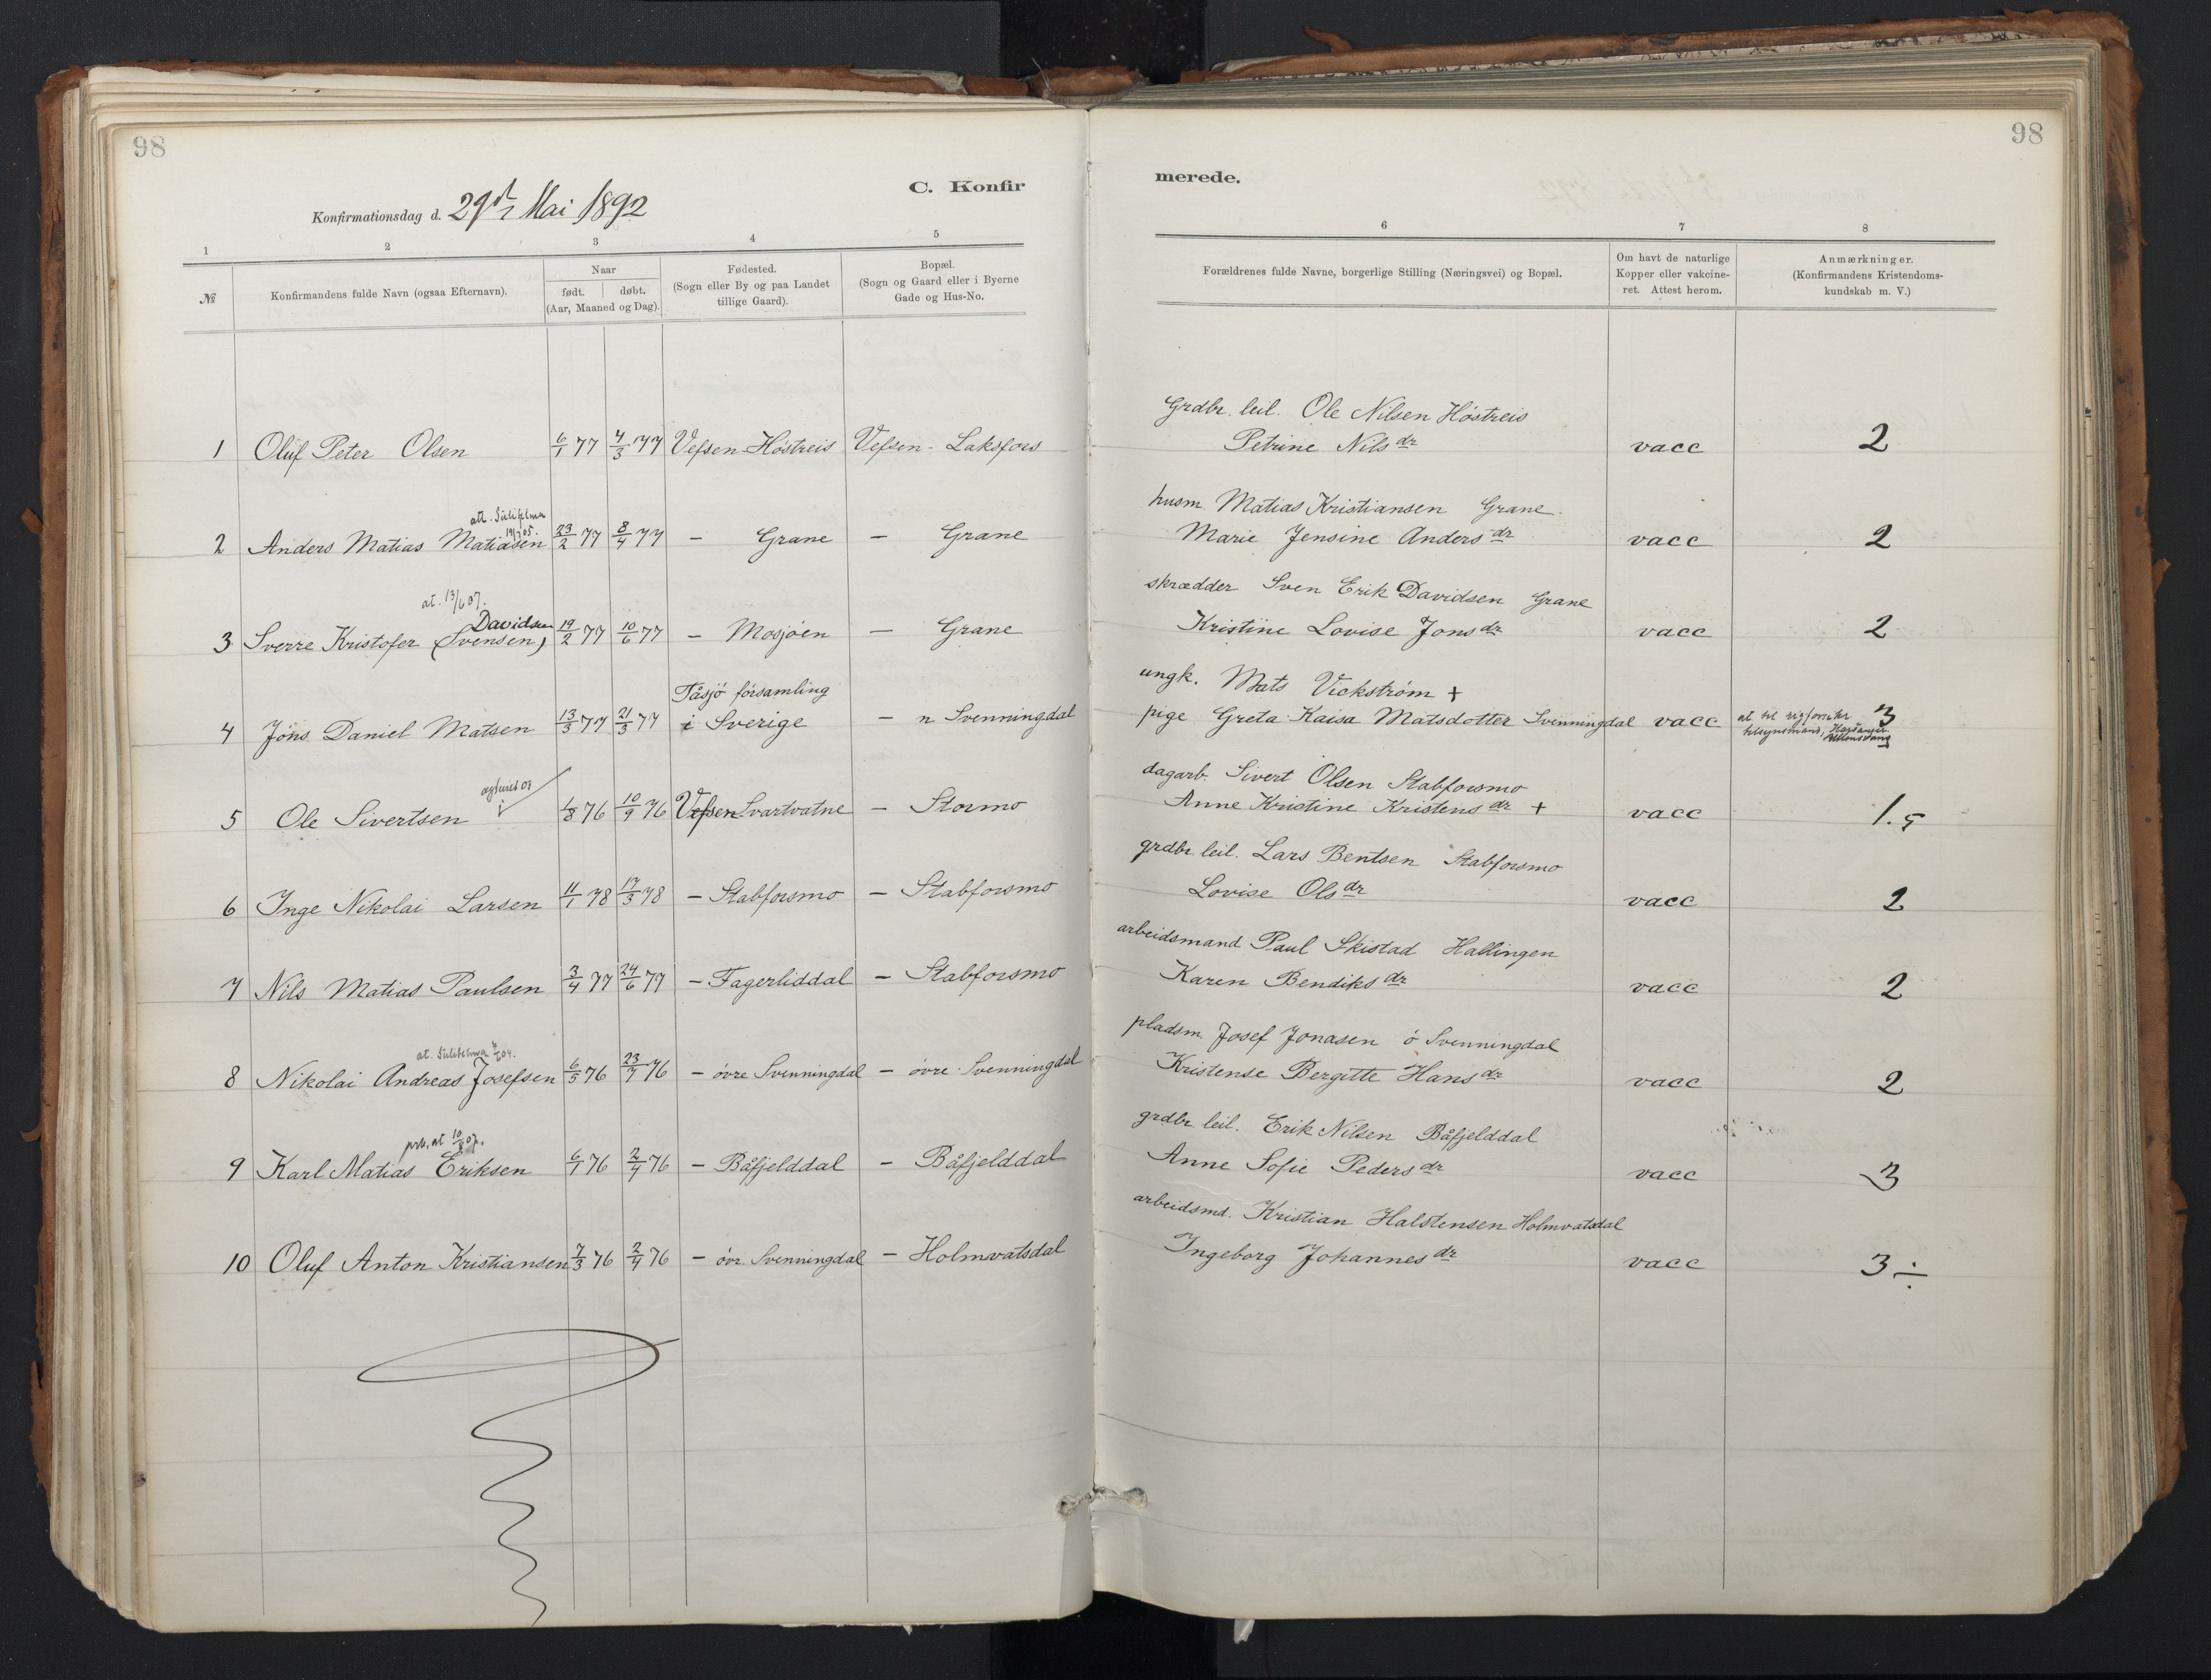 98
98
C. Konfir
merede.
Konfirmationsdag d. 29de Mai 1892
1 2 3 4 5
6 7 8
№
Konfirmandens fulde Navn (ogsaa Efternavn).
Naar
født. døbt.
(Aar, Maaned og Dag).
Fødested.
(Sogn eller By og paa Landet
tillige Gaard).
Bopæl.
(Sogn og Gaard eller i Byerne
Gade og Hus-No.
Forældrenes fulde Navne, borgerlige Stilling (Næringsvei) og Bopæl.
Om havt de naturlige
Kopper eller vakcine-
ret. Attest herom.
Anmærkninger.
(Konfirmandens Kristendoms-
kundskab m. V.)
Grdbr. leil. Ole Nilsen Höstreis
1 Oluf Peter Olsen 6/1 77 4/3 77 Vefsen Höstreis Vefsen - Laksfors Petrine Nilsdr vacc 2
att. Sulitelma
husm. Matias Kristiansen Grane
2 Anders Matias Matiasen 23/2 77 8/4 77 - Grane - Grane Marie Jensine Andersdr vacc 2
at. 13/6 07.
Davidsen
skrædder Sven Erik Davidsen Grane
3 Sverre Kristofer (Svensen) 19/2 77 10/6 77 - Mosjöen - Grane Kristine Lovise Jonsdr vacc 2
Tåsjö församling
ungk. Mats Vickström +
4 Jöns Daniel Matsen 13/3 77 21/3 77 i Sverige - n Svenningdal pige Greta Kaisa Matsdotter Svenningdal vacc 3
at til
tilsynsmand,
dagarb. Sivert Olsen Stabforsmo
5 Ole Sivertsen 1/8 76 10/9 76 Vefsen Svartvatne - Stormo Anne Kristine Kristensdr + vacc 1.5
grdbr. leil. Lars Bentsen Stabforsmo
6 Inge Nikolai Larsen 11/1 78 17/3 78 - Stabforsmo - Stabforsmo Lovise Olsdr vacc 2
arbeidsmand Paul Skistad Hallingen
7 Nils Matias Paulsen 3/4 77 24/6 77 - Fagerliddal - Stabforsmo Karen Bendiksdr vacc 2
at. Sulitelma
pladsm. Josef Jonasen ö Svenningdal
8 Nikolai Andreas Josefsen 6/5 76 23/7 76 - övre Svenningdal - övre Svenningdal Kristense Bergitte Hansdr vacc 2
grdbr. leil. Erik Nilsen Båfjelddal
9 Karl Matias Eriksen 6/1 76 2/4 76 - Båfjelddal - Båfjelddal Anne Sofie Pedersdr vacc 3
arbeidsmd. Kristian Halstensen Holmvatsdal
10 Oluf Anton Kristiansen 7/3 76 2/4 76 - övr. Svenningdal - Holmvatsdal Ingeborg Johannesdr vacc 3 ÷